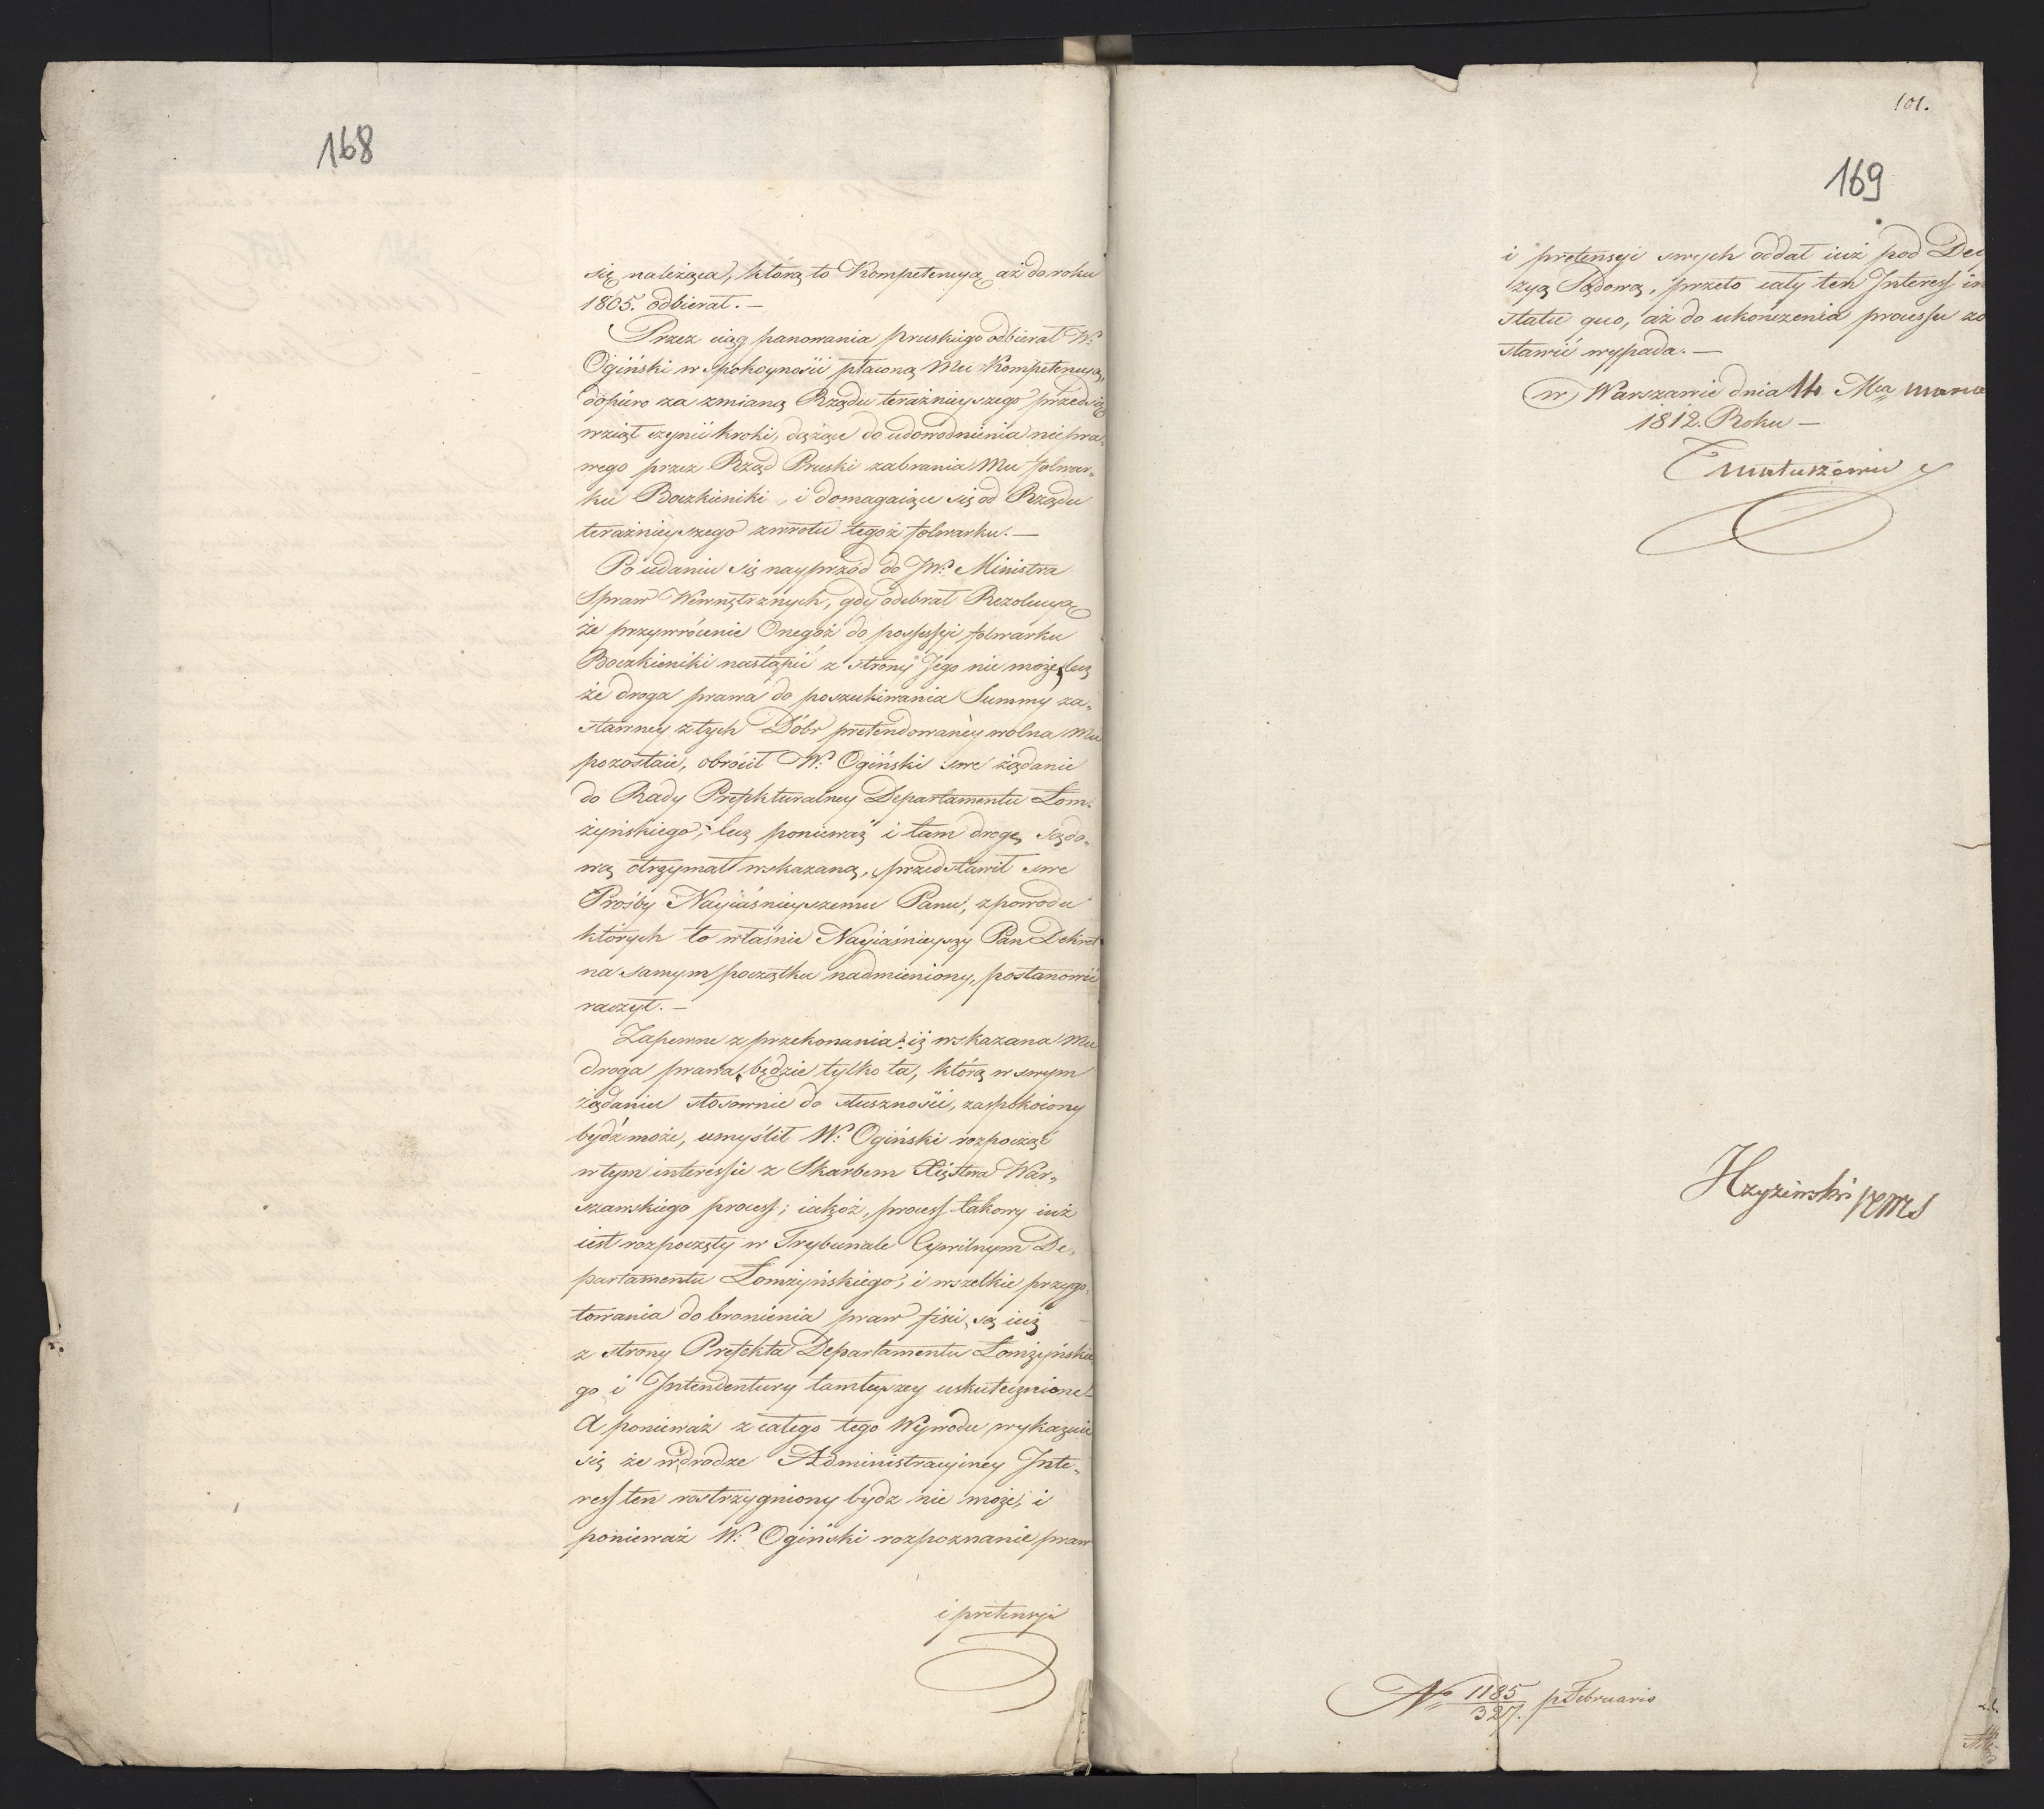 168
się należąca, którą to Kompetencyą aż do roku
1805. odbierał. —
Przez ciąg panowania pruskiego odbierał W.
Ogiński w spokoyności płaconą Mu Kompetencyą,
dopiero za zmianą Rządu teraźnieyszego przedsię
wziął czynić kroki, dążące do udowodnienia niepra„
wego przez Rząd Pruski zabrania Mu folwar„
ku Boczkieniki, i domagaiące się od Rządu
teraźnieyszego zwrotu tegoż folwarku. —
Po udaniu się nayprzód do JW. Ministra
Spraw Wewnętrznych, gdy odebrał Rezolucyą
że przywrócenie Onegoż do possessyi folwarku
Boczkieniki nastąpić z strony Jego nie może, lecz
że droga prawa do poszukiwania Summy za„
stawney z tych Dóbr pretendowaney wolna Mu
pozostaie, obrócił W. Ogiński swe żądanie
do Rady Prefekturalney Departamentu Łom„
żyńskiego; lecz ponieważ i tam drogę sądo„
wą otrzymał wskazaną, przedstawił swe
Prośby Nayiaśnieyszemu Panu, z powodu
których to właśnie Nayiaśnieyszy Pan Dekret
na samym początku nadmieniony, postanowić
raczył. —
Zapewne z przekonania: iż wskazana Mu
droga prawa, będzie tylko ta, którą w swym
żądaniu stosownie do słuszności, zaspokoiony
bydź może, umyślił W. Ogiński rozpocząć
w tym interessie z Skarbem Xięstwa War„
szawskiego process; iakoż, process takowy iuż
iest rozpoczęty w Trybunale Cywilnym De„
partamentu Łomżyńskiego, i wszelkie przygo„
towania do bronienia praw fisci, są iuż
z strony Prefekta Departamentu Łomżyńskie
go i Intendentury tamteyszey uskutecznione.
A ponieważ z całego tego Wywodu wykazuie
się że w drodze Administracyiney Inte„
ress ten rostrzygniony bydz nie może, i
ponieważ W. Ogiński rozpoznanie praw
i pretensyi
101.
169
i pretensyi swych oddał iuż pod Decy
zyą Sądową, przeto cały ten Interess in
statu quo, aż do ukończenia processu zo
stawić wypada. —
w Warszawie dnia 14 Mca marca
1812. Roku —
T Matuszewic
N° 1185/327. p Februario